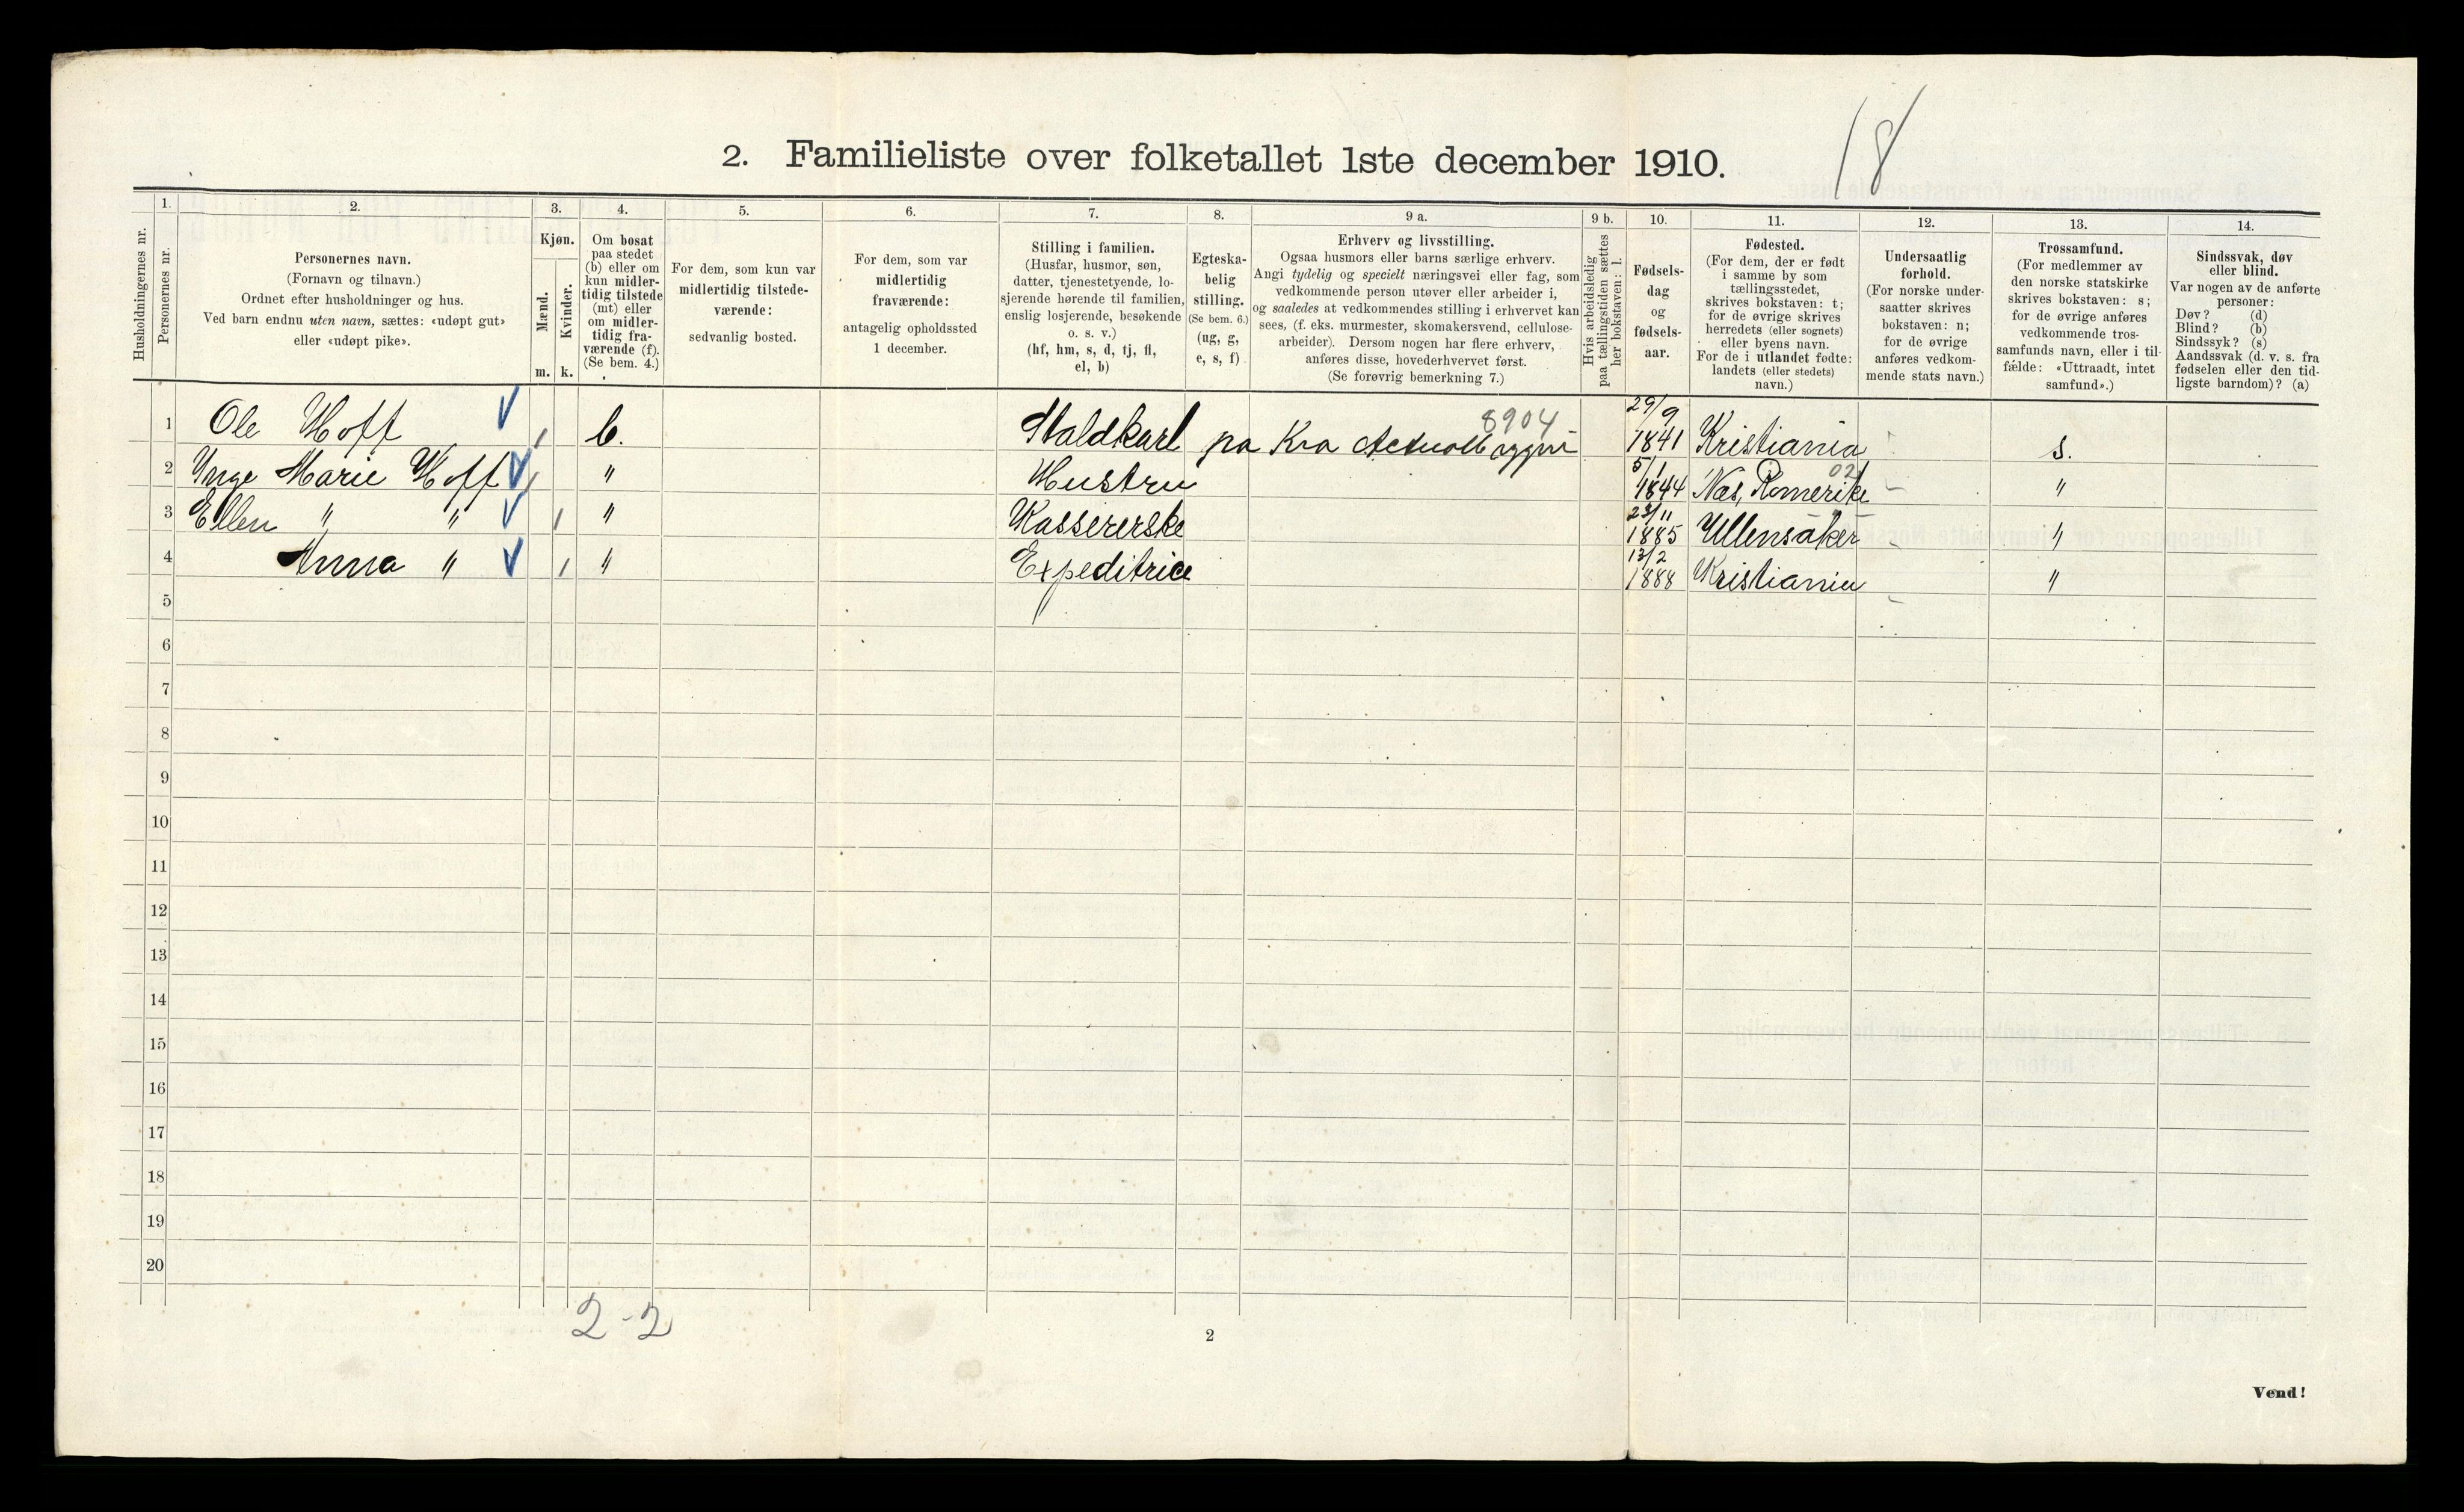 18
2. Familieliste over folketallet 1ste december 1910.
Husholdningernes nr.
1.
Personernes nr.
2.
Personernes navn.
(Fornavn og tilnavn.)
Ordnet efter husholdninger og hus.
Ved barn endnu uten navn, sættes: «udøpt gut»
eller «udøpt pike».
3.
Kjøn.
Mænd.
m.
Kvinder.
k.
4.
Om bosat
paa stedet
(b) eller om
kun midler-
tidig tilstede
(mt) eller
om midler-
tidig fra-
værende (f).
(Se bem. 4.)
5.
For dem, som kun var
midlertidig tilstede-
værende:
sedvanlig bosted.
6.
For dem, som var
midlertidig
fraværende:
antagelig opholdssted
1 december.
7.
Stilling i familien.
(Husfar, husmor, søn,
datter, tjenestetyende, lo-
sjerende hørende til familien,
enslig losjerende, besøkende
o. s. v.)
(hf, hm, s, d, tj, fl,
el, b)
8.
Egteska-
belig
stilling.
(Se bem. 6.)
(ug, g,
e, s, f)
9 a.
Erhverv og livsstilling.
Ogsaa husmors eller barns særlige erhverv.
Angi tydelig og specielt næringsvei eller fag, som
vedkommende person utøver eller arbeider i,
og saaledes at vedkommendes stilling i erhvervet kan
sees, (f. eks. murmester, skomakersvend, cellulose-
arbeider). Dersom nogen har flere erhverv,
anføres disse, hovederhvervet først.
(Se forøvrig bemerkning 7.)
9 b.
Hvis arbeidsledig
paa tællingstiden sættes
her bokstaven: l.
10.
Fødsels-
dag
og
fødsels-
aar.
11.
Fødested.
(For dem, der er født
i samme by som
tællingsstedet,
skrives bokstaven: t;
for de øvrige skrives
herredets (eller sognets)
eller byens navn.
For de i utlandet fødte:
landets (eller stedets)
navn.)
12.
Undersaatlig
forhold.
(For norske under-
saatter skrives
bokstaven: n;
for de øvrige
anføres vedkom-
mende stats navn.)
13.
Trossamfund.
(For medlemmer av
den norske statskirke
skrives bokstaven: s;
for de øvrige anføres
vedkommende tros-
samfunds navn, eller i til-
fælde: «Uttraadt, intet
samfund».)
14.
Sindssvak, døv
eller blind.
Var nogen av de anførte
personer:
Døv? (d)
Blind? (b)
Sindssyk? (s)
Aandssvak (d. v. s. fra
fødselen eller den tid-
ligste barndom)? (a)
8904
1 Ole Hoff b. Staldkarl pa Kra 29/9 1841 Kristiania s.
2 Inge Marie Hoff " Hustru 5/1 1844 Næs, Romerike 02 "
3 Ellen " " " Kassererske 23/11 1885 Ullensaker "
4 Anna " " Expeditrice 13/2 1888 Kristiania "
5
6
7
8
9
10
11
12
13
14
15
16
17
18
19
20
2-2
2
Vend!